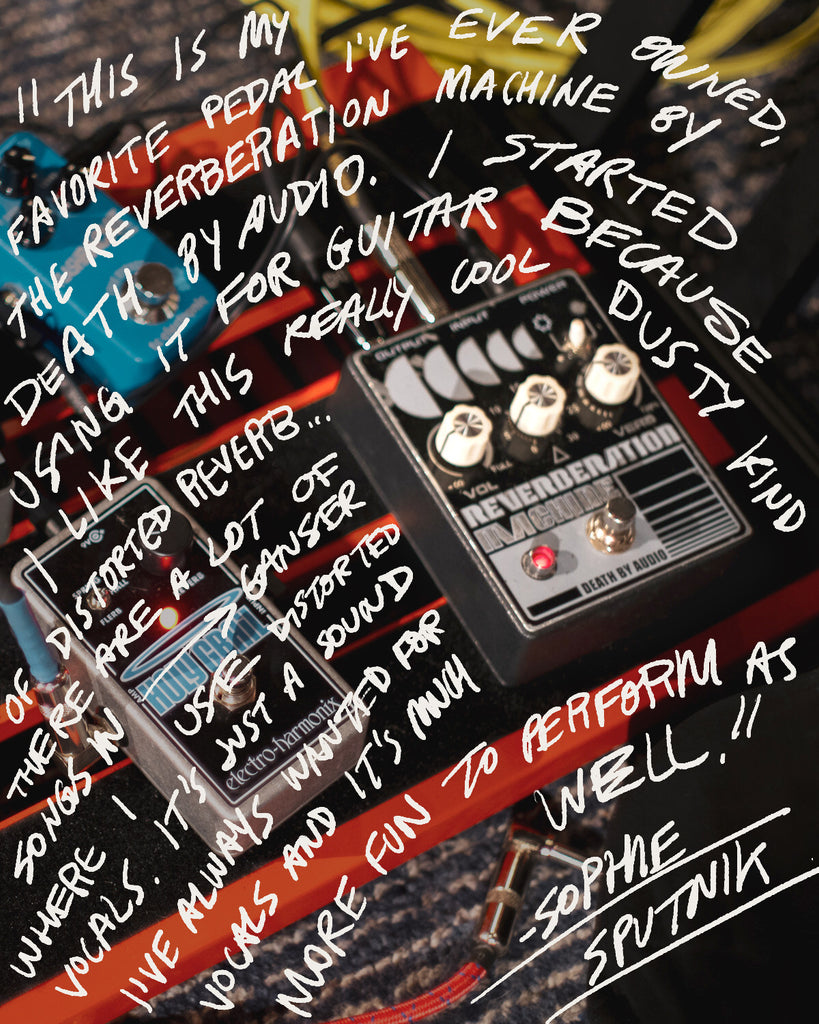 "THIS IS MY
FAVORITE PEDAL I'VE EVER OWNED,
THE REVERBERATION MACHINE BY
DEATH BY AUDIO. I STARTED
USING IT FOR GUITAR BECAUSE
I LIKE THIS REALLY COOL DUSTY KIND
OF DISTORTED REVERB...
THERE ARE A LOT OF
SONGS IN GANSER
WHERE I USE DISTORTED
VOCALS. IT'S JUST A SOUND
I'VE ALWAYS WANTED FOR
VOCALS AND IT'S MUCH
MORE FUN TO PERFORM AS
WELL."
-SOPHIE
SPUTNIK
OUTPUT INPUT POWER
VOL VERB
FULL
REVERBERATION
MACHINE
DEATH BY AUDIO
9V
SPRING
HALL
FLERB
REVERB
AMP
HOLY GRAIL
NANO
electro-harmonix